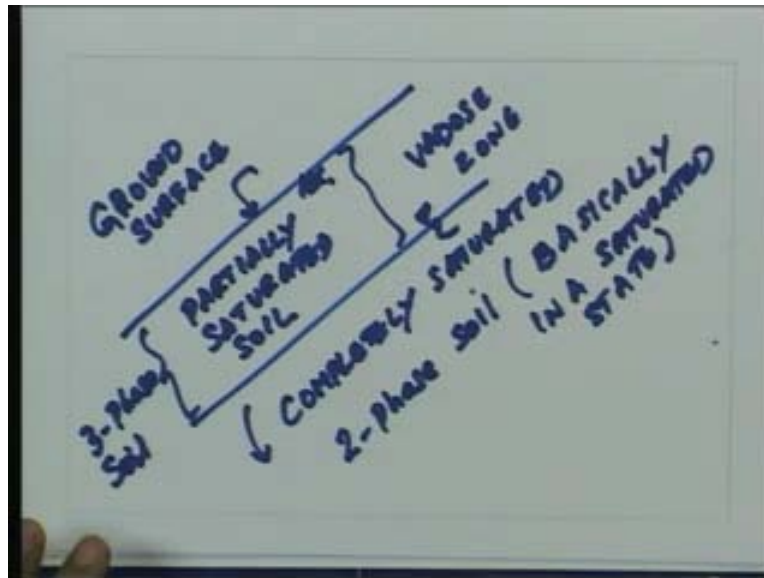 GROUND
SURFACE
VADOSE
ZONE
PARTIALLY
SATURATED
SOIL
3-Phase
Soil
COMPLETELY SATURATED
2-Phase Soil (BASICALLY
IN A SATURATED
STATE)